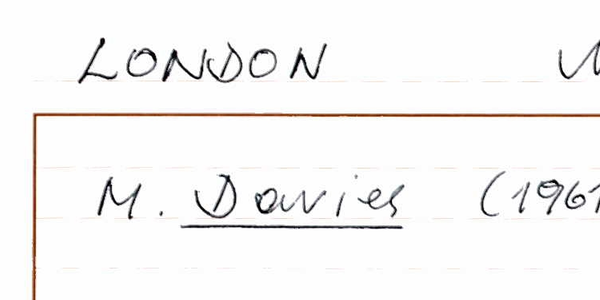 LONDON
M. Davies (1961